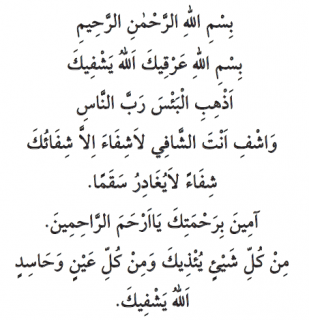 بِسْمِ اللهِ الرَّحْمٰنِ الرَّحِيمِ
بِسْمِ اللهِ عَرْقِيكَ اَللهُ يَشْفِيكَ
اَذْهِبِ الْبَئْسَ رَبَّ النَّاسِ
وَاشْفِ اَنْتَ الشَّافِي لَاشِفَاءَ اِلَّا شِفَائُكَ
شِفَاءً لَايُغَادِرُ سَقَمًا.
آمِينَ بِرَحْمَتِكَ يَااَرْحَمَ الرَّاحِمِينَ.
مِنْ كُلِّ شَيْئٍ يُئْذِيكَ وَمِنْ كُلِّ عَيْنٍ وَحَاسِدٍ
اَللهُ يَشْفِيكَ.